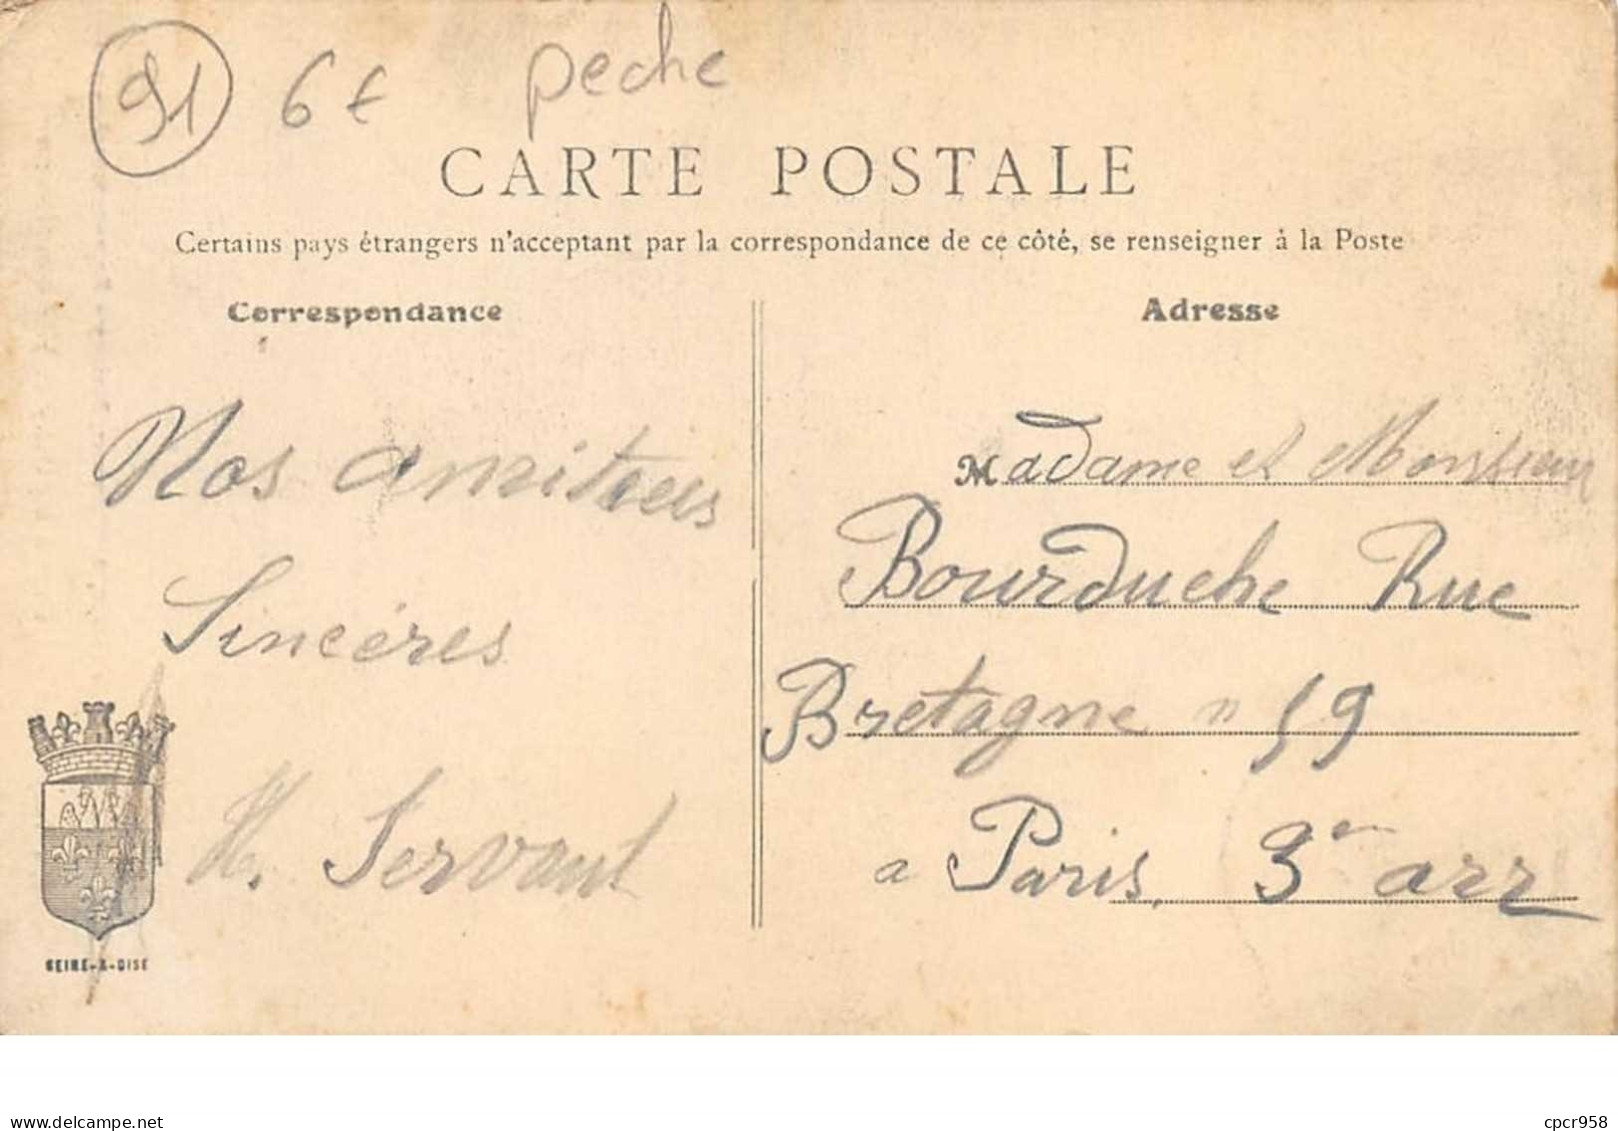 91 6€ peche
CARTE POSTALE
Certains pays étrangers n'acceptant par la correspondance de ce côté, se renseigner à la Poste
Correspondance
Nos amitiées
Sincères
H. Servant
SEINE-&-OISE
Adresse
Madame et Monsieur
Bourduche Rue
Bretagne n 59
a Paris, 3e arr
www.delcampe.net
cpcr958